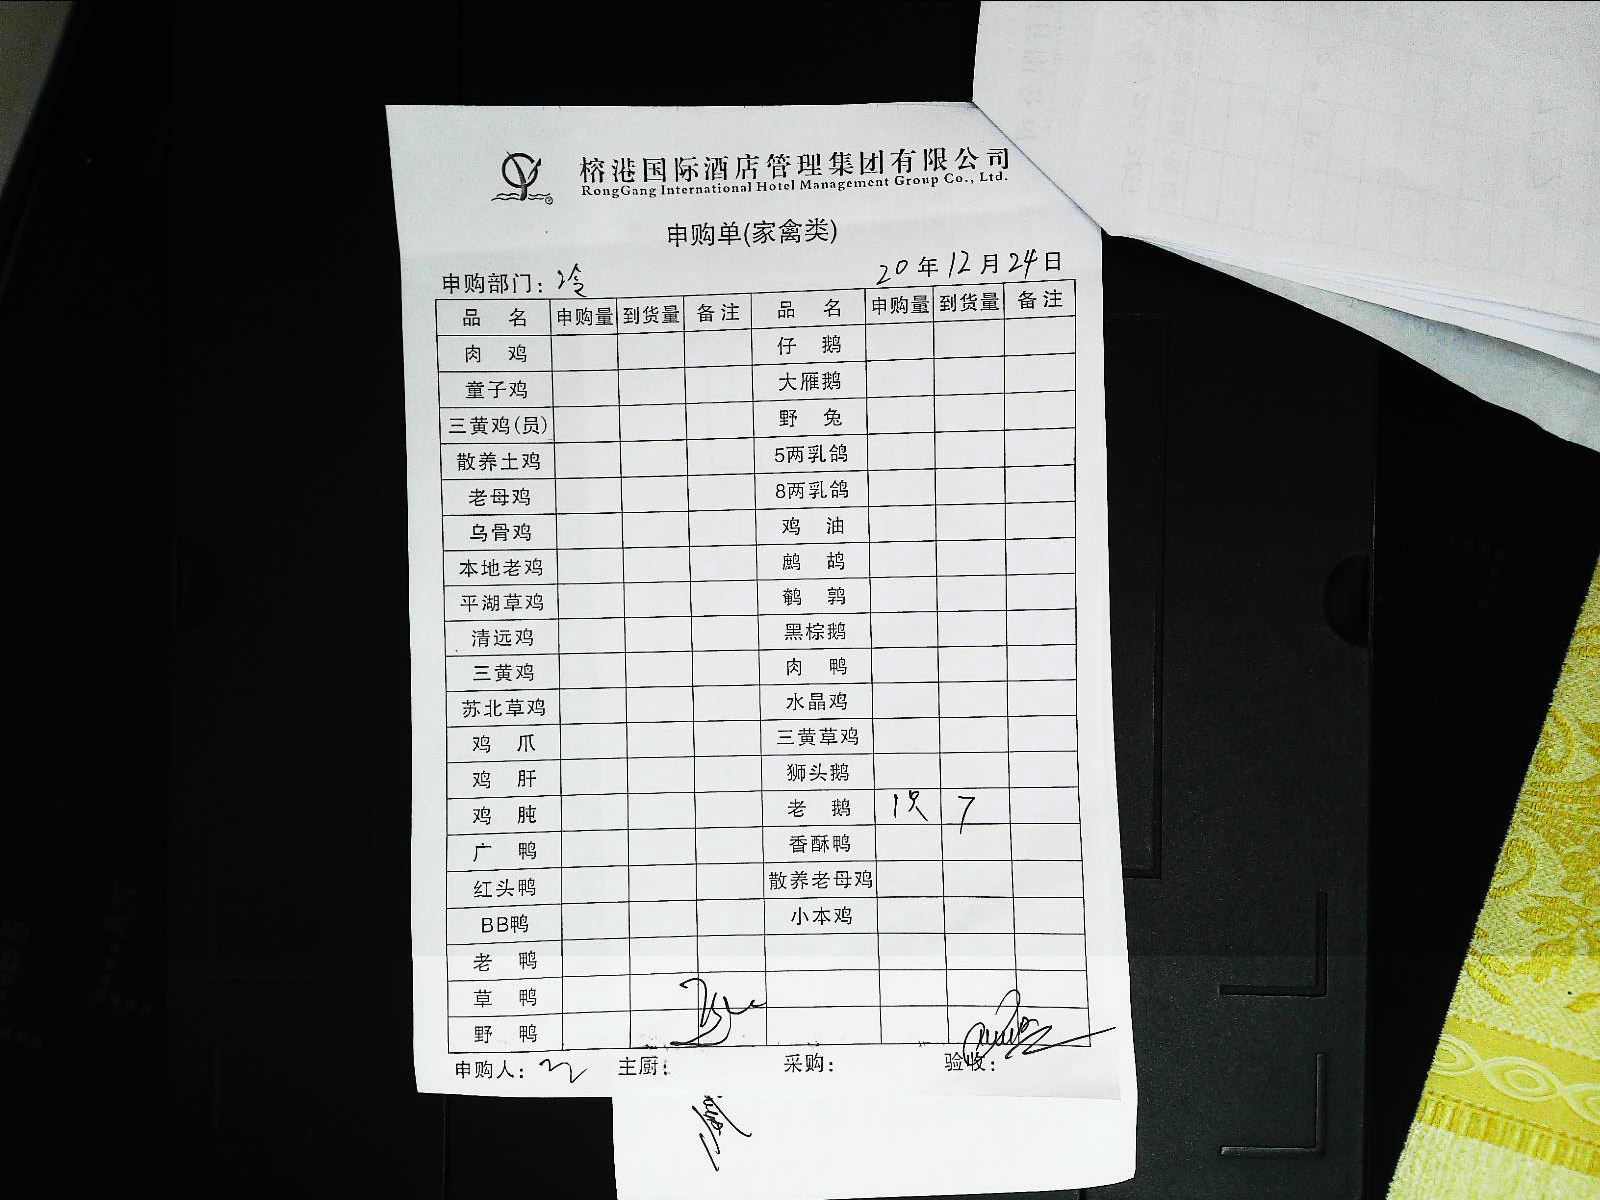 榕港国际酒店管理集团有限公司
RongGang International Hotel Management Group Co., Ltd.
申购单(家禽类)
申购部门：冷 20年12月24日
品名 申购量 到货量 备注 品名 申购量 到货量 备注
肉鸡 仔鹅
童子鸡 大雁鹅
三黄鸡(员) 野兔
散养土鸡 5两乳鸽
老母鸡 8两乳鸽
乌骨鸡 鸡油
本地老鸡 鹧鸪
平湖草鸡 鹌鹑
清远鸡 黑棕鹅
三黄鸡 肉鸭
苏北草鸡 水晶鸡
鸡爪 三黄草鸡
鸡肝 狮头鹅
鸡肫 老鹅 1只 7
广鸭 香酥鸭
红头鸭 散养老母鸡
BB鸭 小本鸡
老鸭
草鸭
野鸭
申购人： 主厨： 采购： 验收：